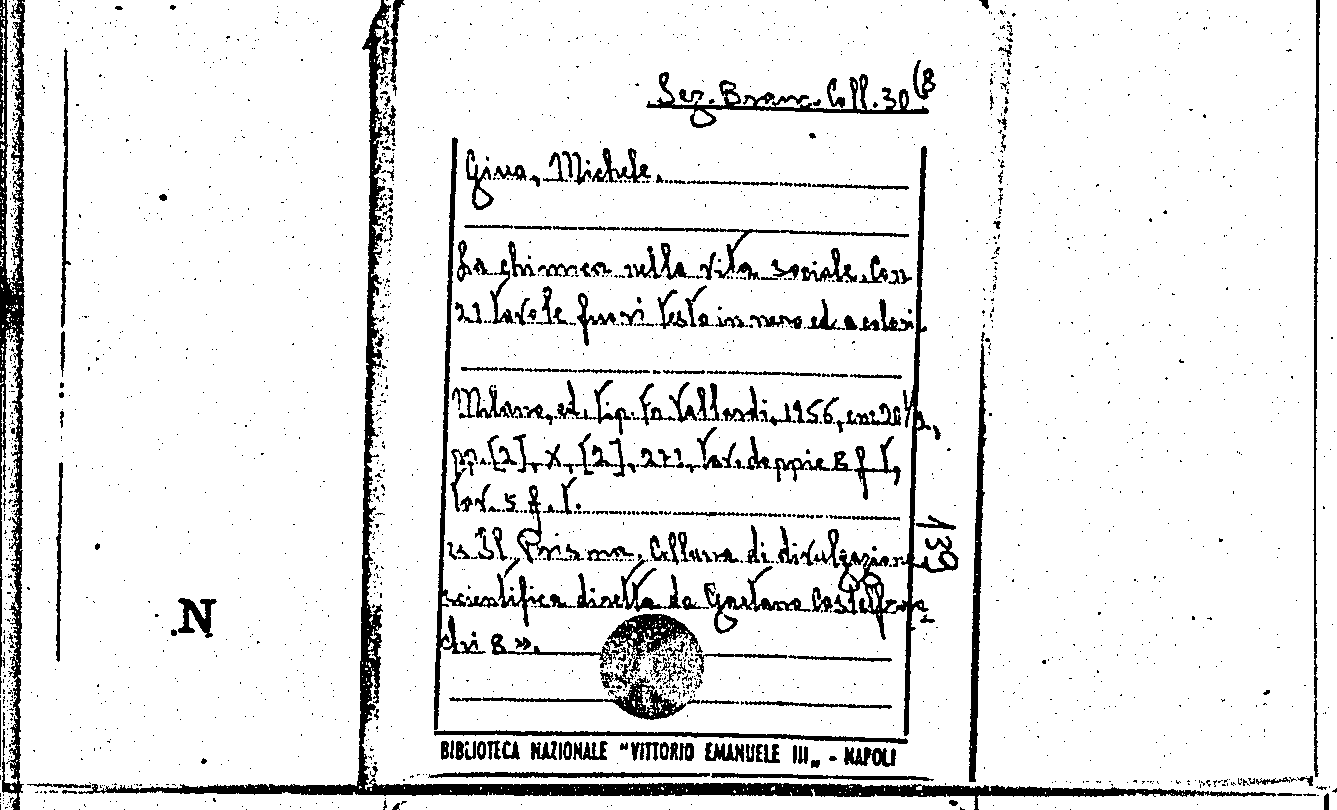 Sez. Branc. Coll. 30 (8
Giua, Michele.
La chimica nella vita sociale. Con
21 tavole fuori testo in nero ed a colori.
Milano, ed. tip. Fr. Vallardi, 1956, cm 20 1/2,
pp. [2], X, [2], 271, tav. doppie 8 f. t.,
tav. 5 f. t.
« Il Prisma. Collana di divulgazione
scientifica diretta da Gaetano Castelfran-
chi 8 ».
139
N
BIBLIOTECA NAZIONALE "VITTORIO EMANUELE III„ - NAPOLI